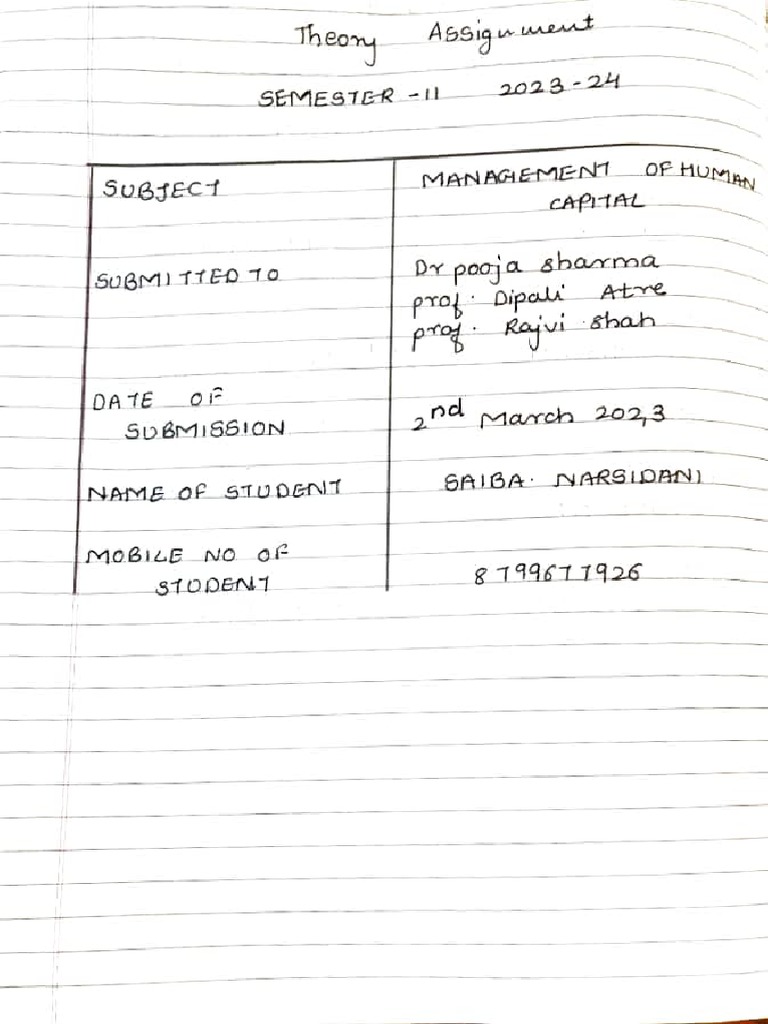 Theory Assignment
SEMESTER - II 2023-24
SUBJECT
MANAGEMENT OF HUMAN
CAPITAL
SUBMITTED TO
Dr pooja sharma
prof. Dipali Atre
prof. Rajvi shah
DATE OF
SUBMISSION
2nd March 2023
NAME OF STUDENT
SAIBA. NARSIDANI
MOBILE NO OF
STUDENT
8799677926